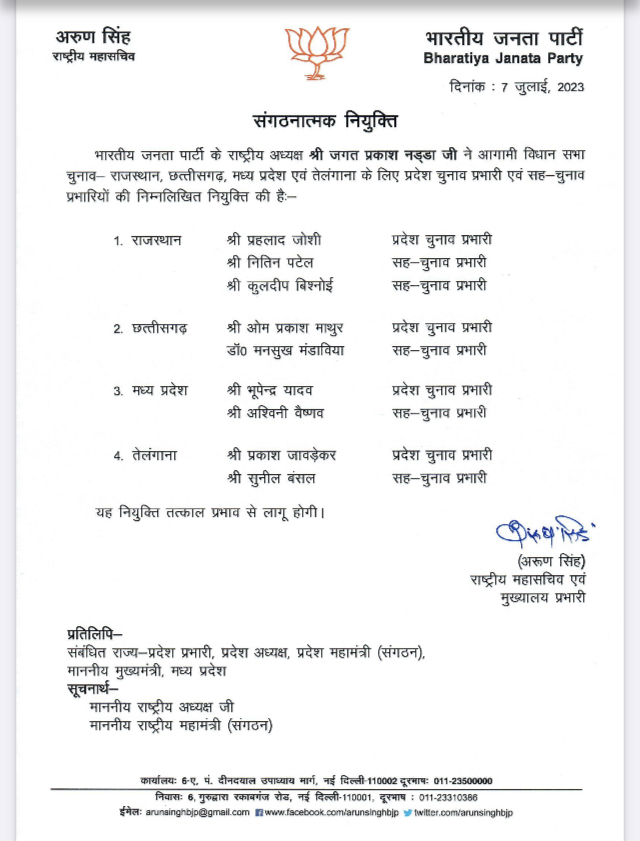 अरुण सिंह
राष्ट्रीय महासचिव
भारतीय जनता पार्टी
Bharatiya Janata Party
दिनांक : 7 जुलाई, 2023
संगठनात्मक नियुक्ति
भारतीय जनता पार्टी के राष्ट्रीय अध्यक्ष श्री जगत प्रकाश नड्डा जी ने आगामी विधान सभा
चुनाव– राजस्थान, छत्तीसगढ़, मध्य प्रदेश एवं तेलंगाना के लिए प्रदेश चुनाव प्रभारी एवं सह–चुनाव
प्रभारियों की निम्नलिखित नियुक्ति की है:–
1. राजस्थान श्री प्रहलाद जोशी प्रदेश चुनाव प्रभारी
श्री नितिन पटेल सह–चुनाव प्रभारी
श्री कुलदीप बिश्नोई सह–चुनाव प्रभारी
2. छत्तीसगढ़ श्री ओम प्रकाश माथुर प्रदेश चुनाव प्रभारी
डॉ0 मनसुख मंडाविया सह–चुनाव प्रभारी
3. मध्य प्रदेश श्री भूपेन्द्र यादव प्रदेश चुनाव प्रभारी
श्री अश्विनी वैष्णव सह–चुनाव प्रभारी
4. तेलंगाना श्री प्रकाश जावड़ेकर प्रदेश चुनाव प्रभारी
श्री सुनील बंसल सह–चुनाव प्रभारी
यह नियुक्ति तत्काल प्रभाव से लागू होगी।
(अरूण सिंह)
राष्ट्रीय महासचिव एवं
मुख्यालय प्रभारी
प्रतिलिपि–
संबंधित राज्य–प्रदेश प्रभारी, प्रदेश अध्यक्ष, प्रदेश महामंत्री (संगठन),
माननीय मुख्यमंत्री, मध्य प्रदेश
सूचनार्थ–
माननीय राष्ट्रीय अध्यक्ष जी
माननीय राष्ट्रीय महामंत्री (संगठन)
कार्यालयः 6-ए, पं. दीनदयाल उपाध्याय मार्ग, नई दिल्ली-110002 दूरभाषः 011-23500000
निवासः 6, गुरुद्वारा रकाबगंज रोड, नई दिल्ली-110001, दूरभाष : 011-23310386
ईमेलः arunsinghbjp@gmail.com www.facebook.com/arunsinghbjp twitter.com/arunsinghbjp